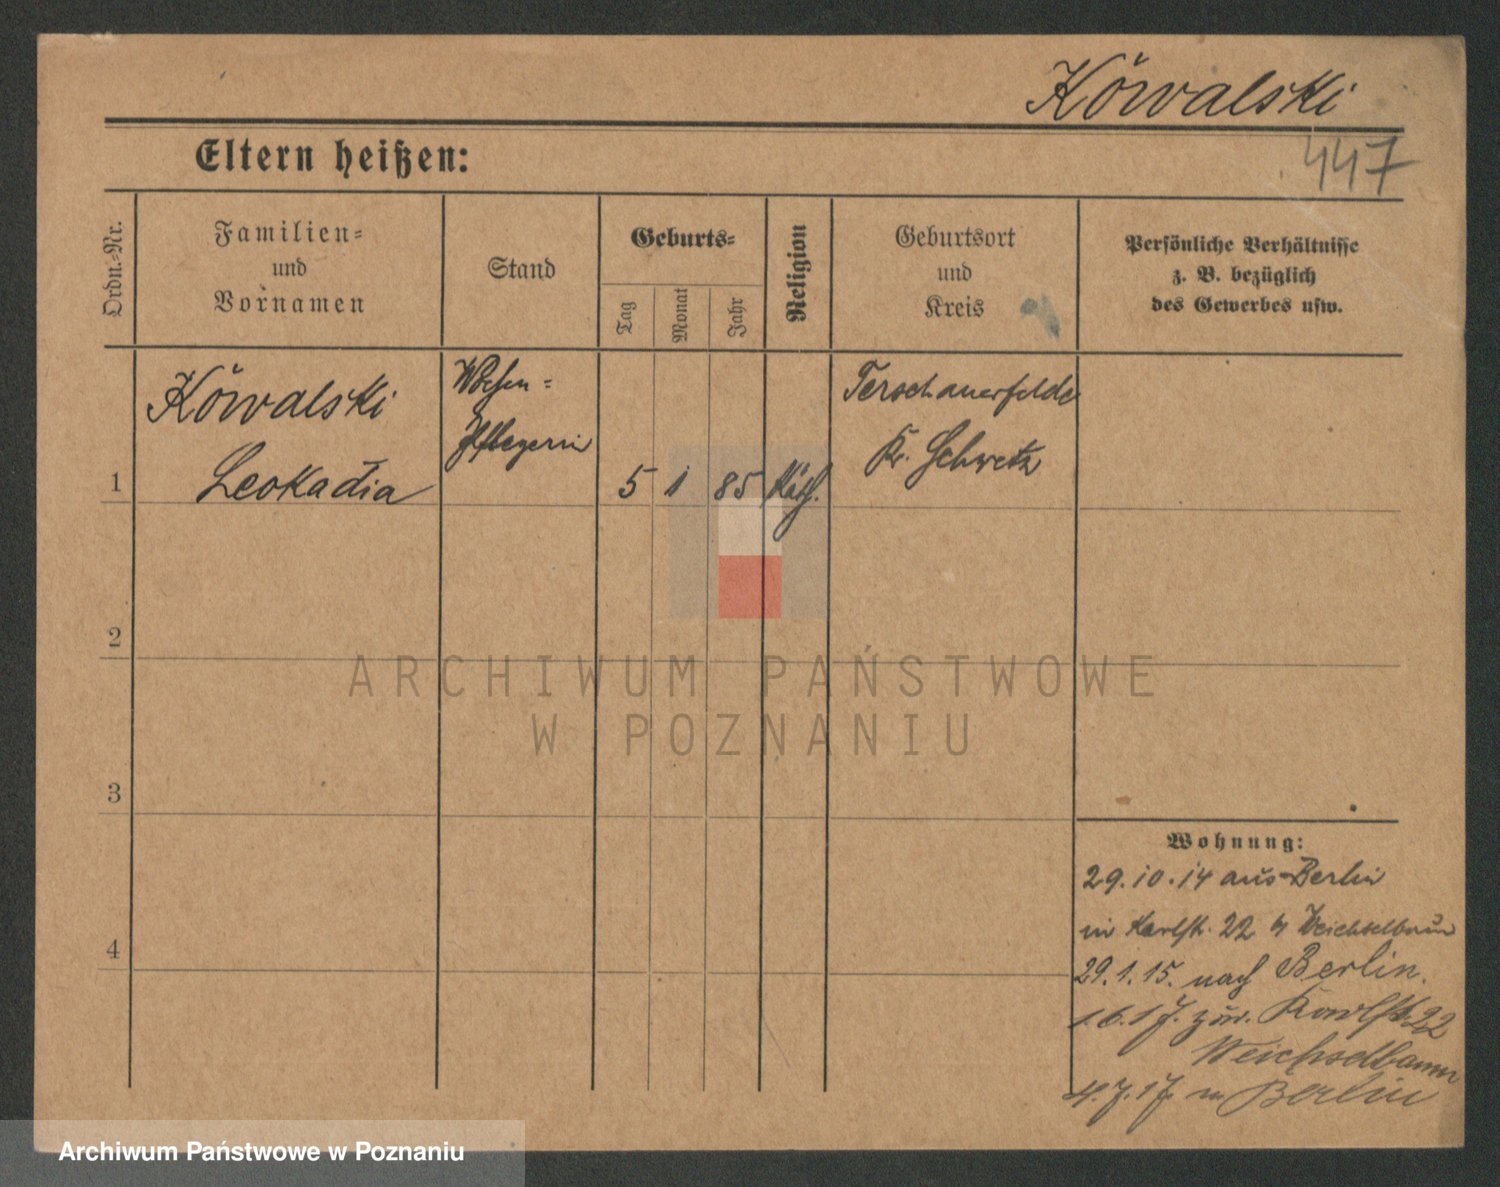 Kowalski
447
Eltern heißen:
Ordn.-Nr.
Familien-
und
Vornamen
Stand
Geburts-
Tag
Monat
Jahr
Religion
Geburtsort
und
Kreis
Persönliche Verhältnisse
z. B. bezüglich
des Gewerbes usw.
1
Kowalski
Leokadia
Wochen-
Pflegerin
5 1 85 Kath.
Terschauerfelde
Kr. Schwetz
2
3
4
Wohnung:
29.10.14 aus Berlin
in Karlstr. 22 b/ Weichselbaum
29.1.15. nach Berlin.
1.6.17. zur. Karlstr. 22
Weichselbaum
4.7.17. n. Berlin
ARCHIWUM PAŃSTWOWE
W POZNANIU
Archiwum Państwowe w Poznaniu